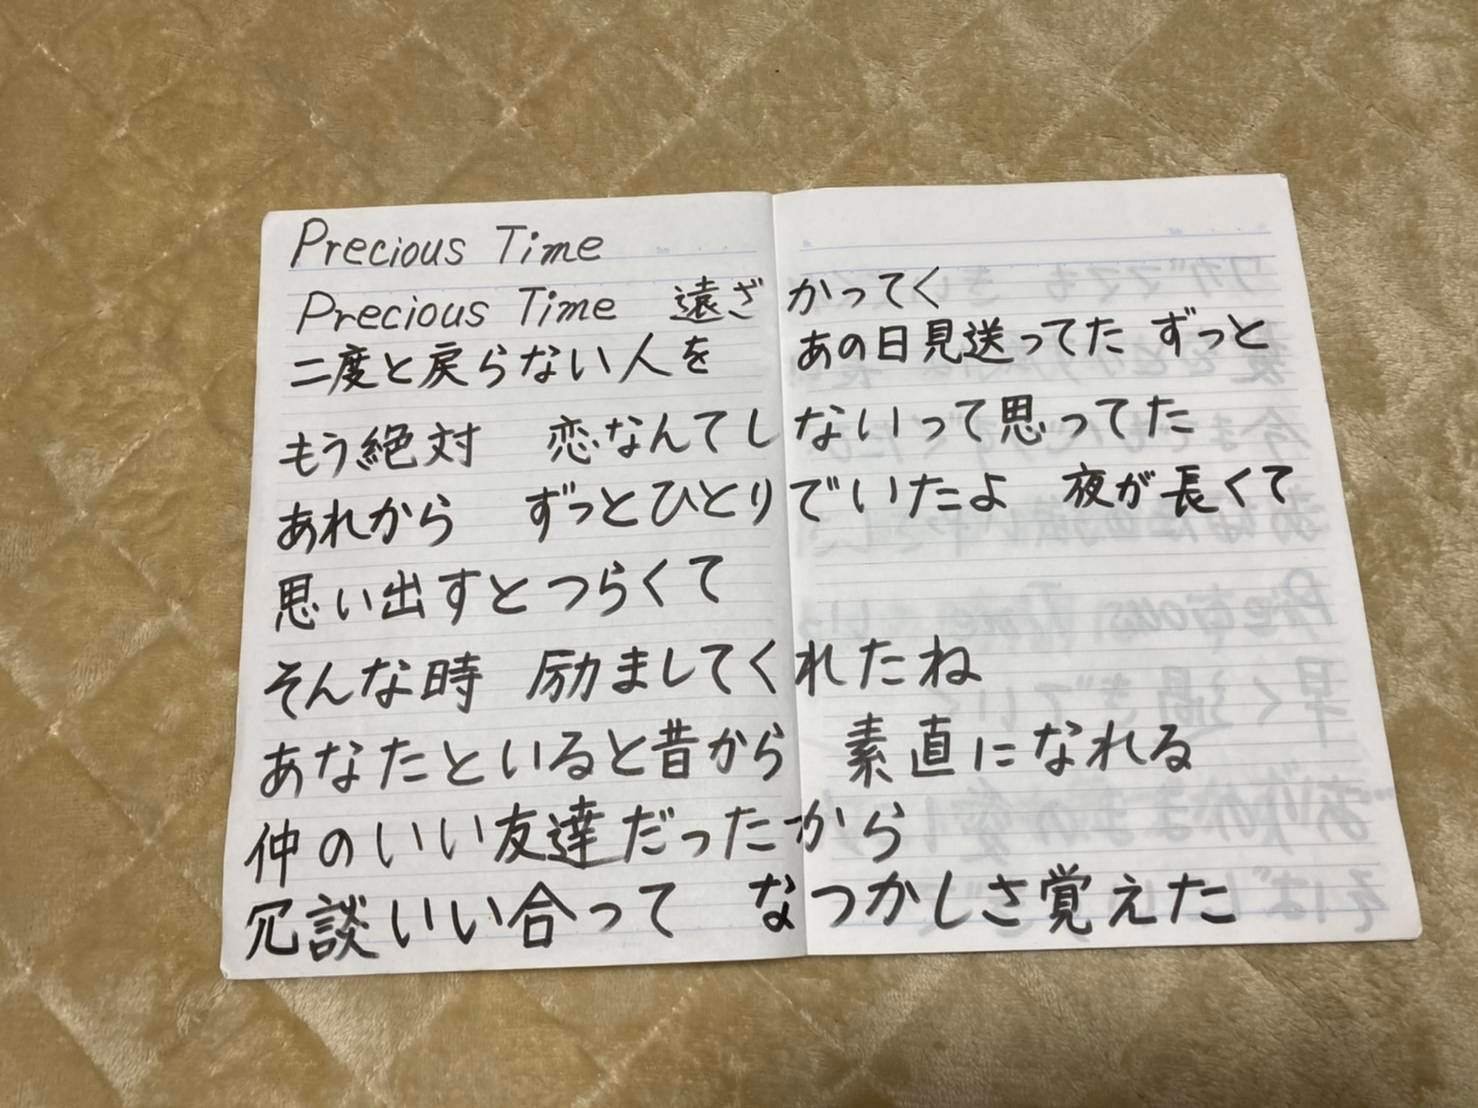 Precious Time
Precious Time 遠ざかってく
二度と戻らない人を あの日見送ってた ずっと
もう絶対 恋なんてしないって思ってた
あれから ずっとひとりでいたよ 夜が長くて
思い出すとつらくて
そんな時 励ましてくれたね
あなたといると昔から 素直になれる
仲のいい友達だったから
冗談いい合って なつかしさ覚えた